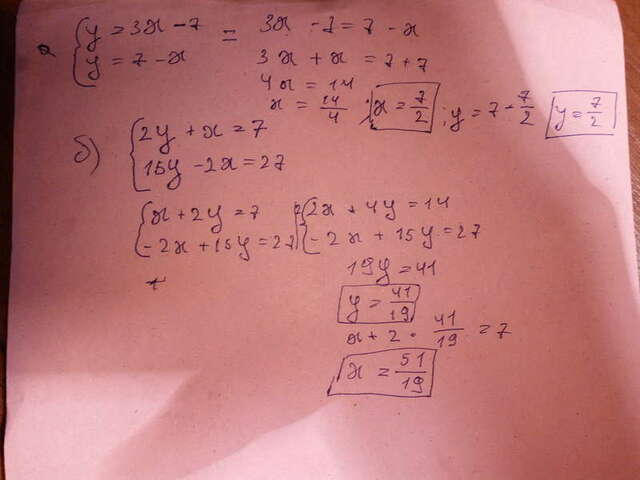 а { y = 3x - 7 = 3x - 7 = 7 - x
{ y = 7 - x 3x + x = 7 + 7
4x = 14
x = 14/4 ; x = 7/2 ; y = 7 - 7/2 y = 7/2
б) { 2y + x = 7
{ 15y - 2x = 27
{ x + 2y = 7 |2 { 2x + 4y = 14
{ -2x + 15y = 27 { -2x + 15y = 27
19y = 41
y = 41/19
x + 2 · 41/19 = 7
x = 51/19